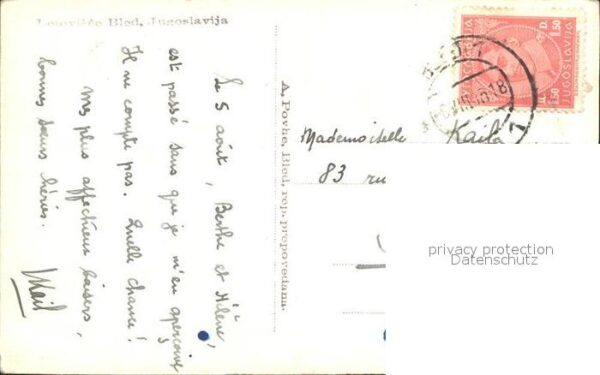 Letovišče Bled, Jugoslavija
Le 5 août, Berthe et Hélène,
est passé sans que je m'en aperçoive
Il ne compte pas. Quelle chance!
mes plus affectueux baisers,
bonnes sœurs
A. Povhe, Bled, rep. prepovedana.
Mademoiselle
83 ru
JUGOSLAVIJA
D. 1.50
1.50
BLED 1
privacy protection
Datenschutz